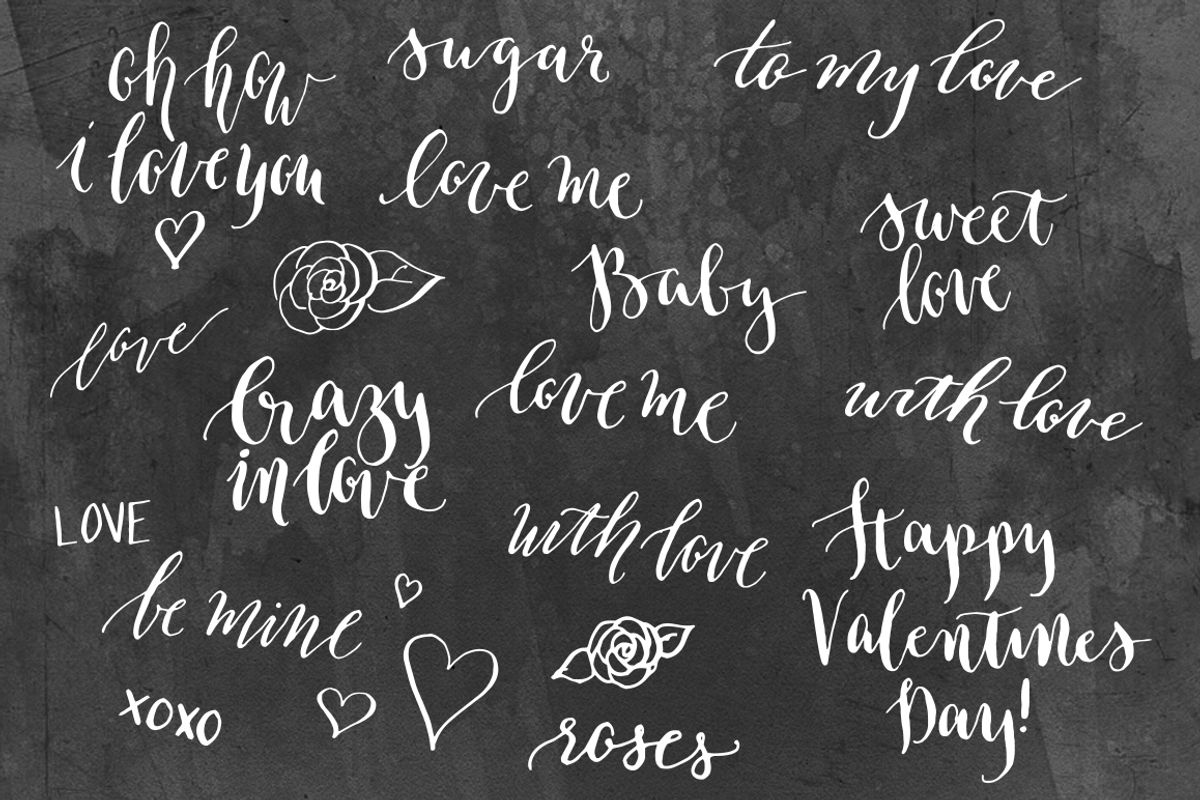 oh how
i love you
sugar
to my love
love me
sweet
love
Baby
love
Crazy
in love
love me
with love
LOVE
be mine
with love
Happy
Valentines
Day!
xoxo
roses